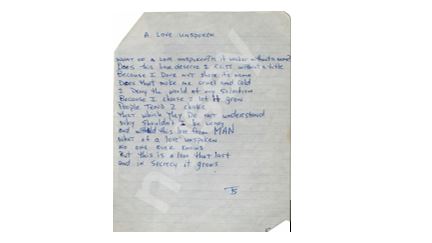 A LOVE UNSPOKEN
WHAT OF A LOVE UNSPOKEN? IS IT weaker without a name?
Does this love deserve 2 exist without a title
Because I dare not share its name
Does that make me cruel and cold
2 Deny the world of my salvation
Because I chose 2 let it grow
People TEND 2 choke
that which They DO NOT understand
Why shouldn't I be weary
and withhold this love from MAN
What of a love unspoken
no one ever knows
But this is a love that lasts
and in secrecy it grows